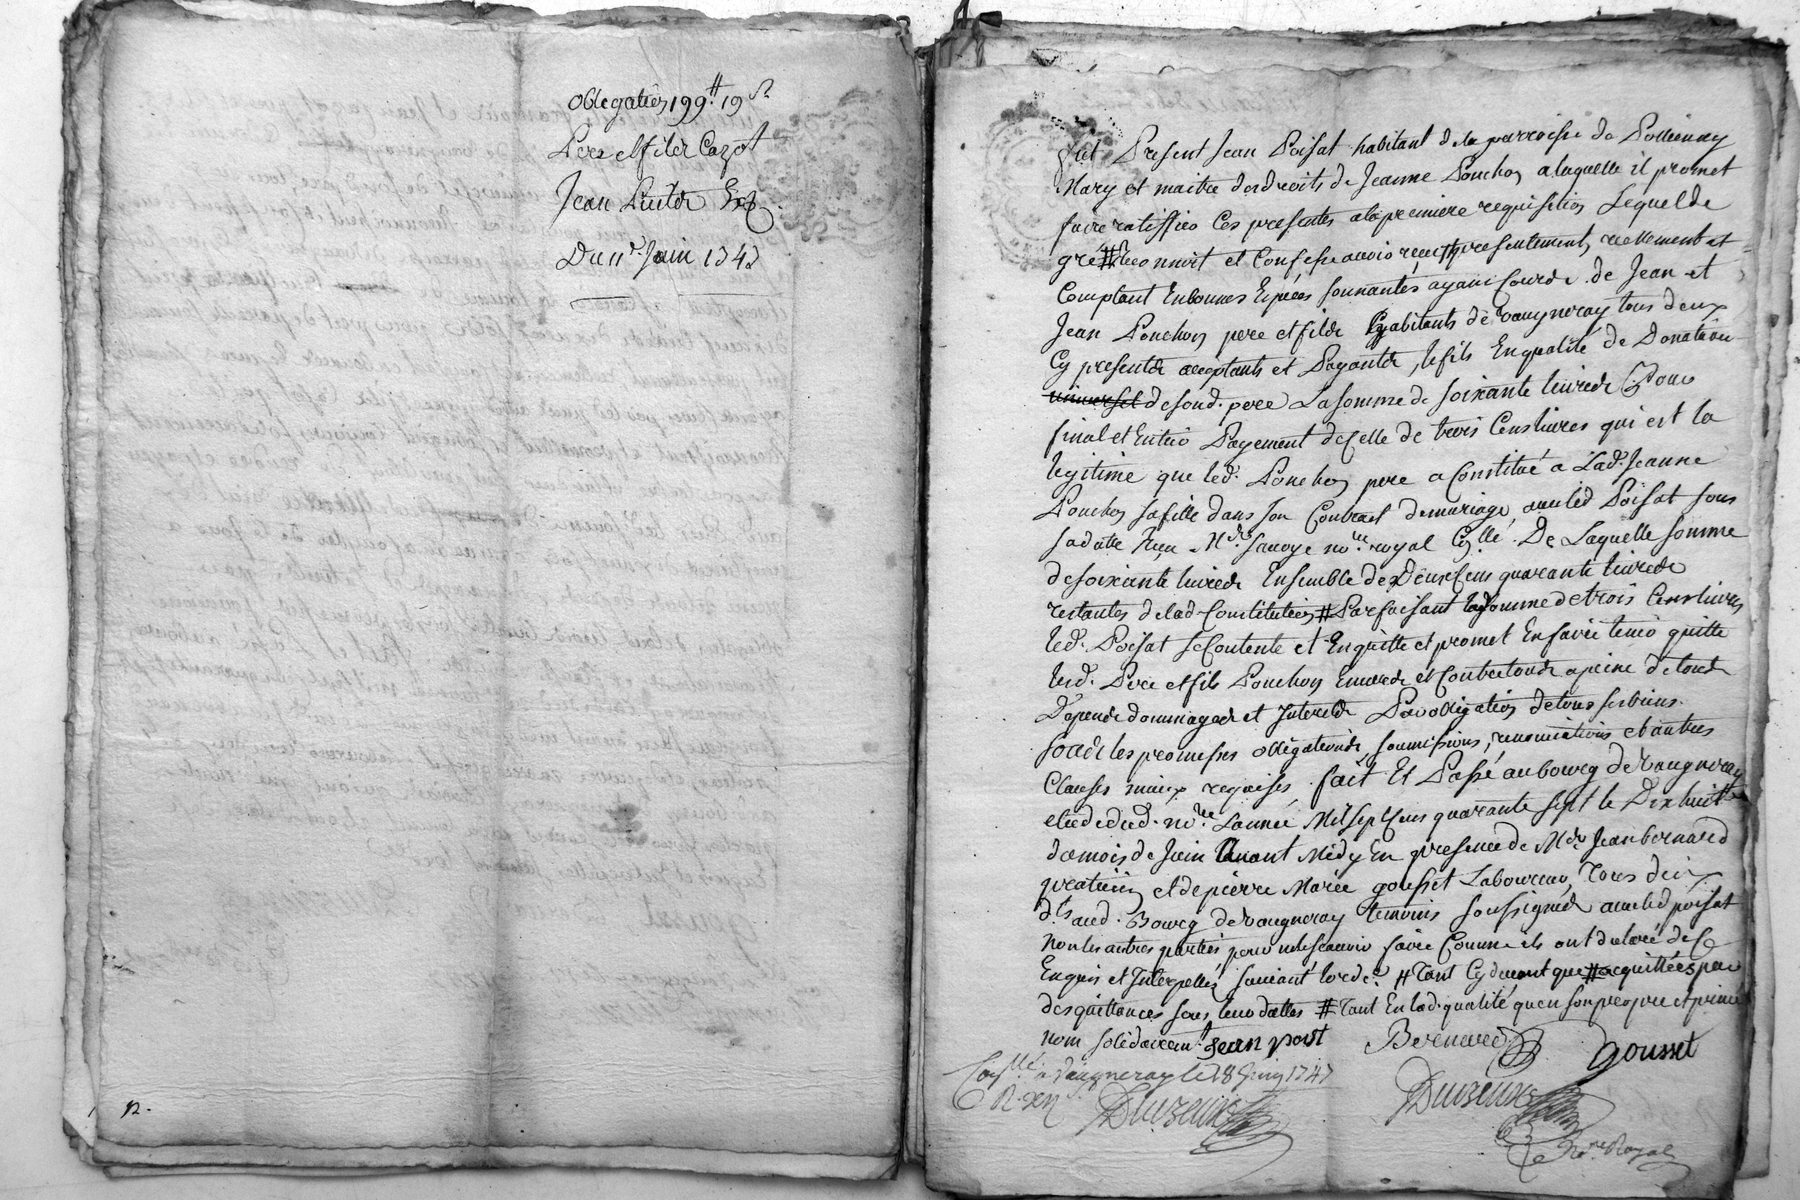 Obligation 199ᵗᵗ 19 s.
Pere et fils Cazot
Jean Cuilté
Du 11ᵉ Juin 1747
92.
fut Present Jean Poisat habitant de la parroisse de Pollionay
Mary et maitre des droits de Jeanne Ponchon a laquelle il promet
faire ratiffier Ces presentes a la premiere requisition Lequel de
gré # reconnoit et Confesse avoir receu presentement, reellement et
Comptant En bonnes Espéces sonnantes ayant Cours de Jean et
Jean Ponchon pere et fils habitants de vaugneray tous deux
Cy presents acceptants et Payants, le fils En qualité de Donataire
universel de sond. pere La somme de soixante livres Pour
final et Entier Payement de Celle de trois Cens livres qui est la
legitime que led. Ponchon pere a Constitué a Lad. Jeanne
Ponchon sa fille dans son Contract de mariage avec led Poisat sous
sa datte Reçu Mᵉ savoye noʳᵉ royal Cₒₙllé. De Laquelle somme
de soixante livres Ensemble de Deux Cens quarante livres
restantes de lad. Constitution # Parfaisant lad somme de trois Cens livres
led. Poisat se Contente et En quitte et promet En faire tenir quitte
lesd. Pere et fils Ponchon Envers et Contre tous a peine de tous
Depends dommages et Interests Par obligation de tous ses biens.
sous les promesses obligations, soumissions, renonciations et autres
Clauses mieux requises. fait Et Passé au bourg de Vaugneray
etude dud. noʳᵉ L'année Mil sept Cens quarante sept le Dix huitᵉ
du mois de Juin Avant Midy En presence de Mᵉ Jean bernard
praticien et de pierre Marie gousset Laboureur, Tous deux
dts aud. Bourg de vaugneray temoins soussignés avec led poisat
non les autres parties pour ne le scavoir faire Comme ils ont declaré de Ce
Enquis et Interpellés suivant lordce. # Tant Cy devant que acquittées par
des quittances sous leurs dattes # Tant En lad. qualité qu'en son propre et privé
nom solidairemᵗ Jean poist Bernard gousset
Conᵗˡˡé a Vaugneray le 18 Juin 1747
Duvzeux
Duvzeux
noʳᵉ Royal